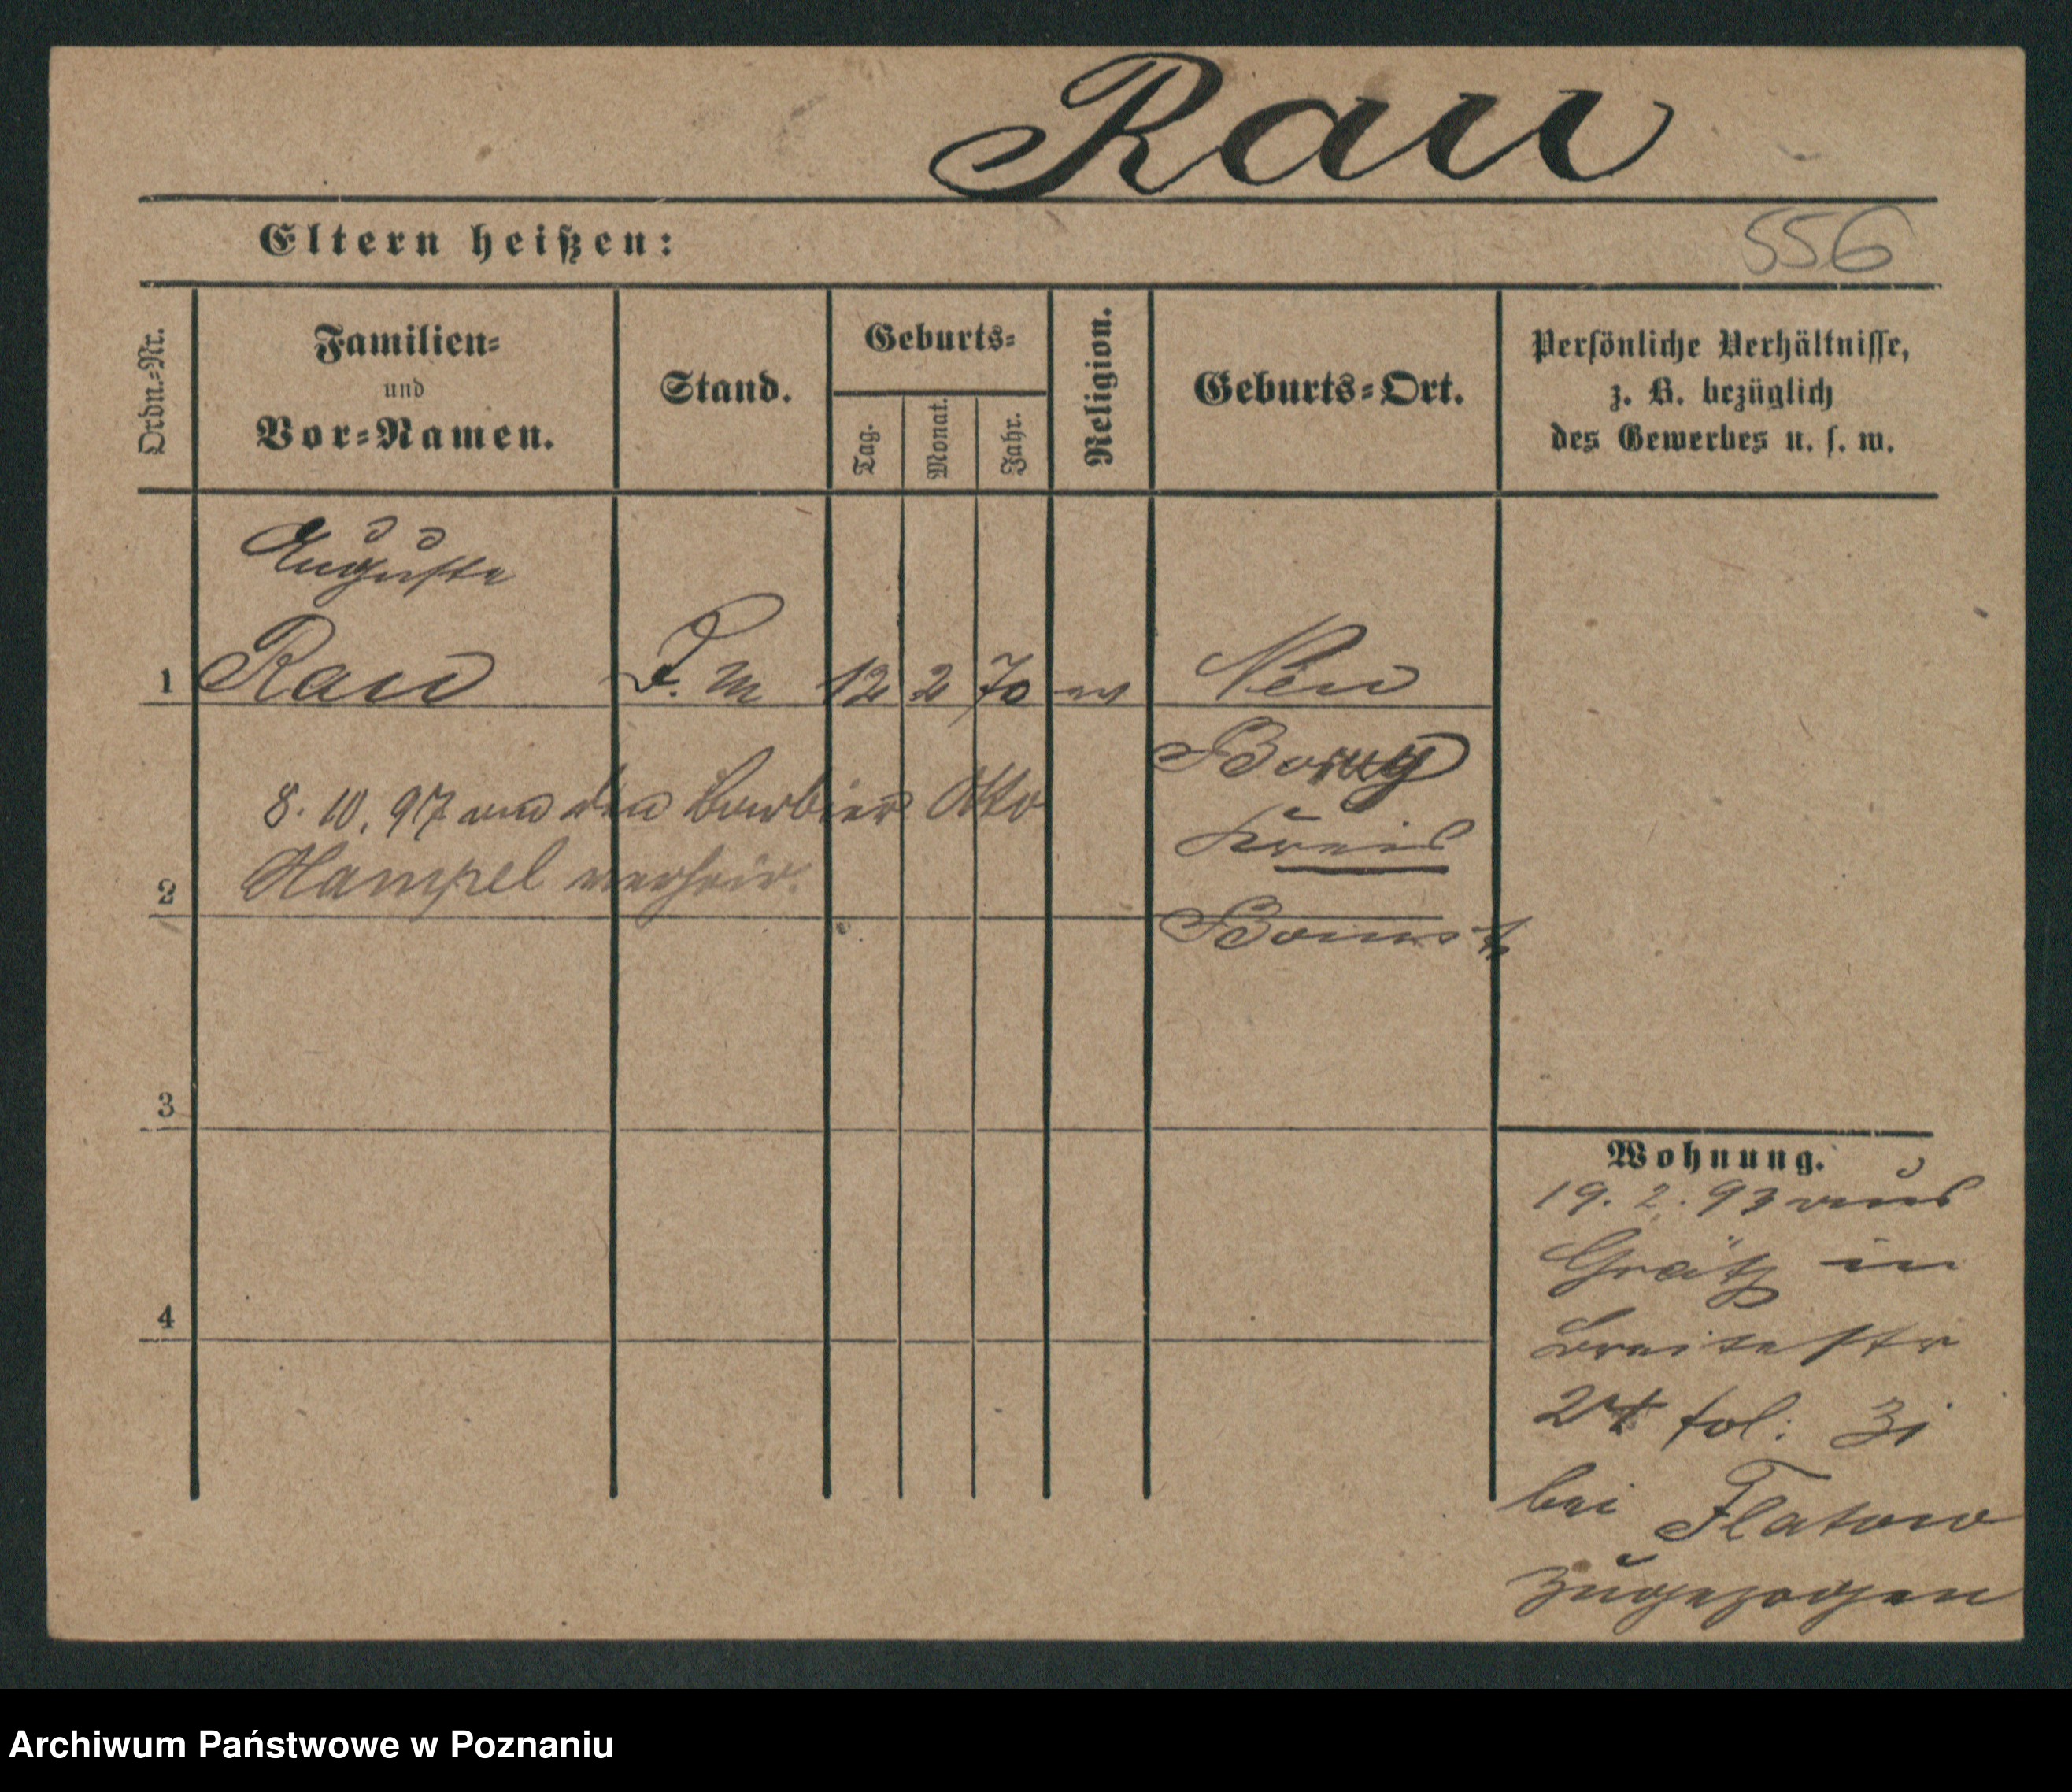 Rau
Eltern heißen:
556
Ordn.-Nr.
Familien-
und
Vor-Namen.
Stand.
Geburts-
Tag.
Monat.
Jahr.
Religion.
Geburts-Ort.
Persönliche Verhältnisse,
z. B. bezüglich
des Gewerbes u. s. w.
Auguste
1 Rau D. M 12 2 70 ev Neu
Boruy
Kreis
Bomst
8. 10. 97 an den Barbier Otto
2 Hampel verheir.
3
4
Wohnung.
19. 2. 93 aus
Grätz in
Breitestr
24 fol: 31
bei Flatow
zugezogen
Archiwum Państwowe w Poznaniu